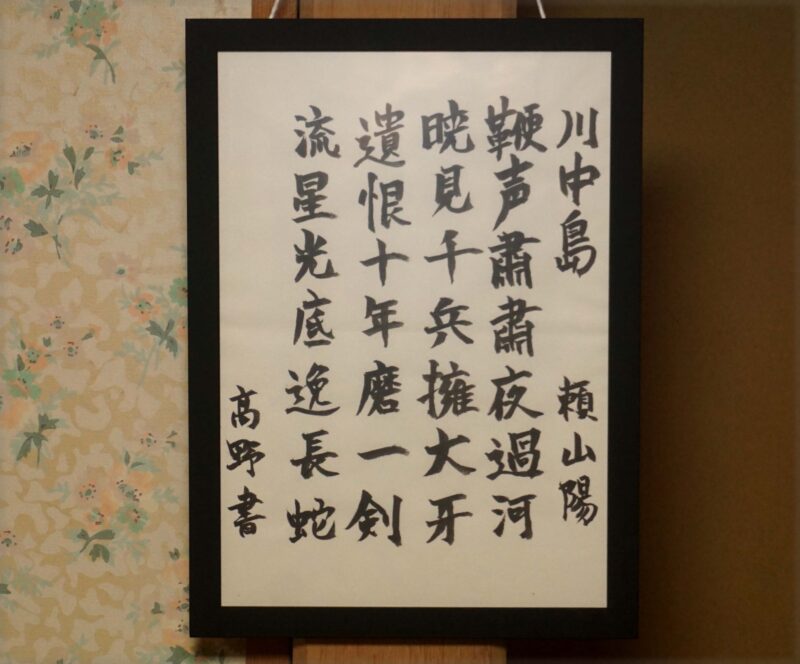 川中島 頼山陽
鞭声肅肅夜過河
暁見千兵擁大牙
遺恨十年磨一剣
流星光底逸長蛇
高野書